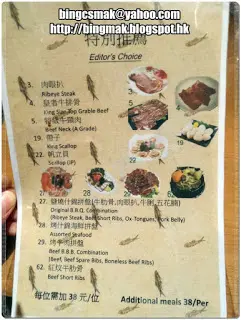 bingcsmak@yahoo.com
http://bingmak.blogspot.hk
特別推薦
Editor's Choice
3. 肉眼扒
Ribeye Steak
4. 皇者牛排骨
King Size Top Grable Beef
5. 特級牛頸肉
Beef Neck (A Grade)
19. 帶子
King Scallop
22. 帆立貝
Scallop (JP)
27. 鹽燒什錦拼盤(牛肋骨,肉眼扒,牛脷,五花腩)
Original B.B.Q. Combination
(Ribeye Steak, Beef Short Ribs, Ox Tongues, Pork Belly)
28. 烤什錦海鮮拼盤
Assorted Seafood
29. 烤牛肉拼盤
Beef B.B.Q. Combination
(Beef, Beef Spare Ribs, Boneless Beef Ribs)
62. 紅炆牛肋骨
Beef Short Ribs
每位需加 38 元/位
Additional meals 38/Per